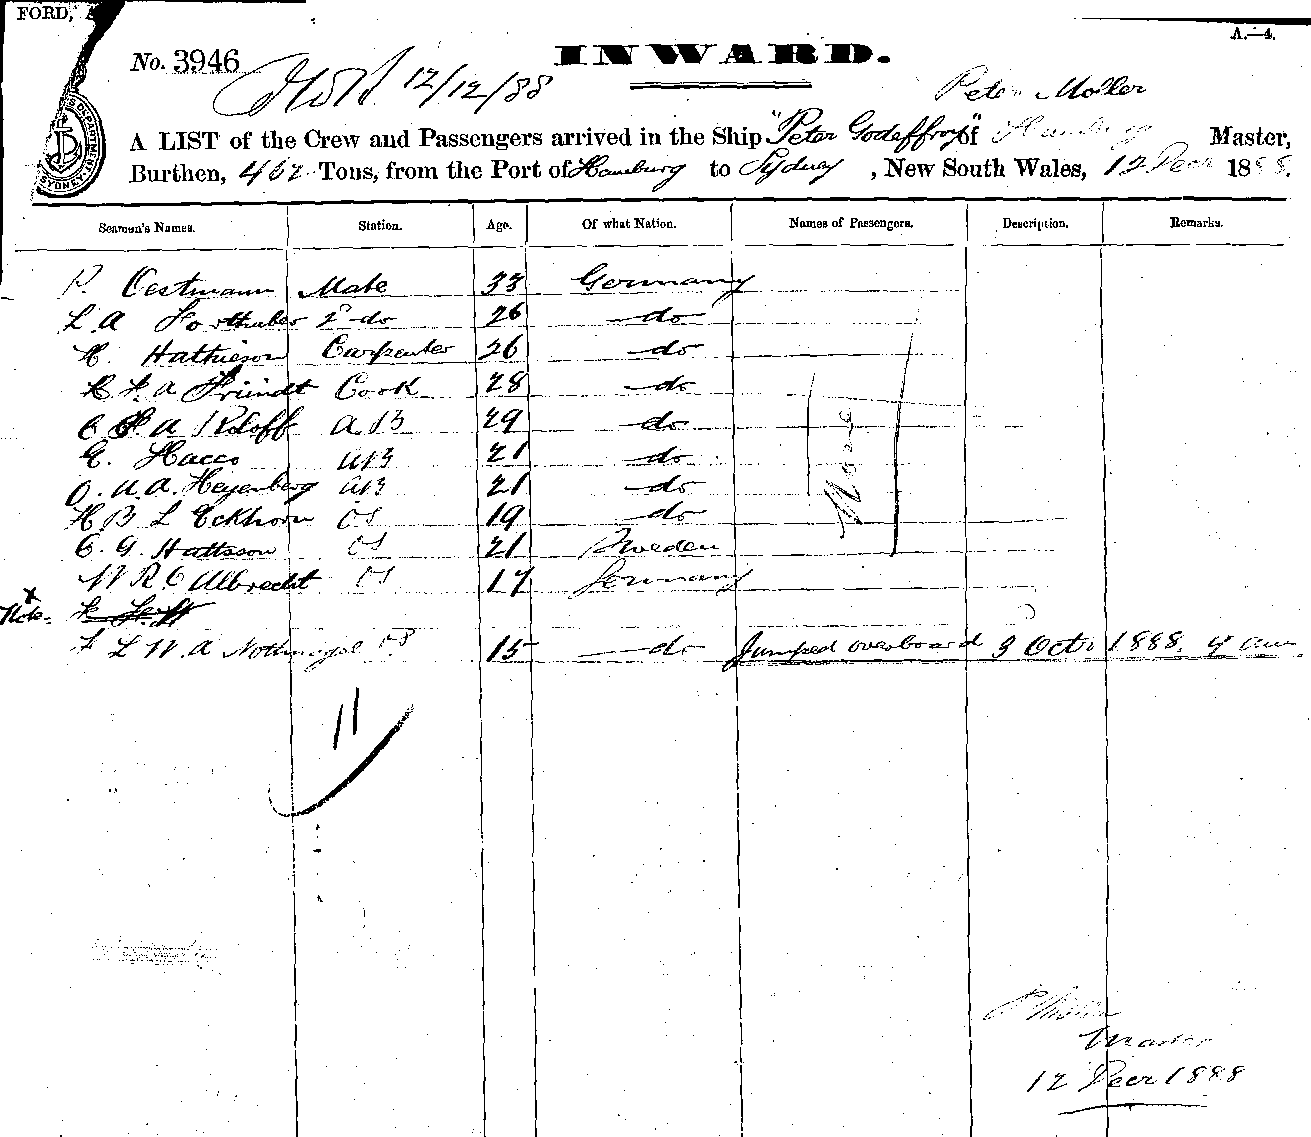 FORD,
A.—4.
No. 3946 INWARD.
12/12/88
Peter Moller
A LIST of the Crew and Passengers arrived in the Ship "Peter Godeffroy" of Hamburg Master,
Burthen, 462 Tons, from the Port of Hamburg to Sydney, New South Wales, 12 Decr 1888.
Seamen's Names. Station. Age. Of what Nation. Names of Passengers. Description. Remarks.
P. Oestmann Mate 33 Germany
L. A 2d do 26 do
H. Mathieson Carpenter 26 do
H. F. A Friindt Cook 28 do
C F A Roloff AB 29 do
E. Hacco AB 21 do
O. U. A. Heyenberg AB 21 do
H B L Eckhorn OS 19 do
C. G. Mattsson OS 21 Sweden
W R C Albrecht OS 17 Germany
None
x
Note.
F L W A Nothnagel OS 15 do Jumped overboard 3 Octr 1888. 4 am.
11
P Moller
Master
12 Decr 1888
SYDNEY